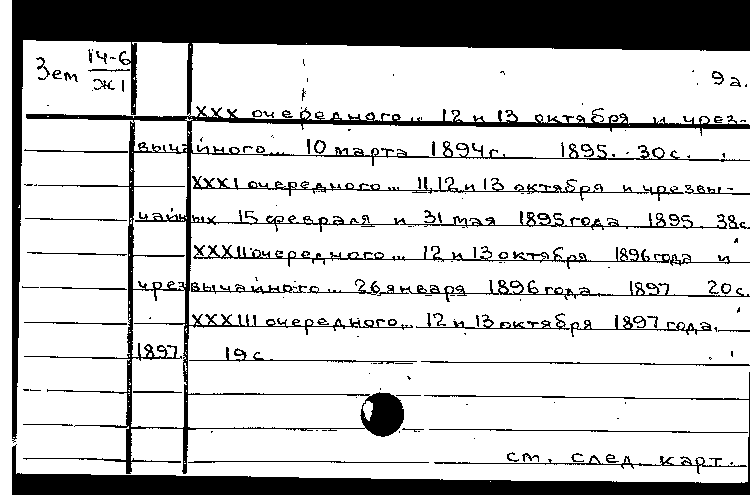 Зем 14-6
Ж1
9а.
XXX очередного... 12 и 13 октября и чрез-
вычайного... 10 марта 1894г. 1895. 30с.
XXXI очередного... 11,12 и 13 октября и чрезвы-
чайных 15 февраля и 31 мая 1895 года. 1895. 38с
XXXII очередного... 12 и 13 октября 1896 года и
чрезвычайного... 26 января 1896 года. 1897 20с.
XXXIII очередного... 12 и 13 октября 1897 года.
1897. 19с.
см. след. карт.